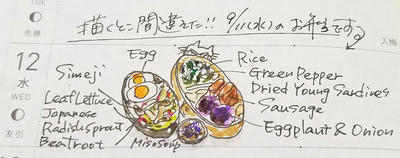 TUE
先勝
描くとこ間違えた!! 9/11(水)のお弁当です。
入梅
12
水
WED
友引
Egg
Simeji
Leaf Lettuce
Japanese
Radish sprout
Beatroot
Miso soup
Rice
Green Pepper
Dried Young Sardines
Sausage
Eggplant & Onion